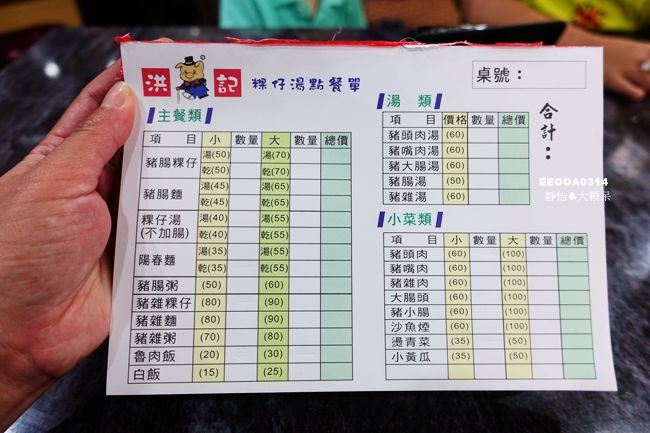 洪記 粿仔湯點餐單
桌號：
合計：
主餐類
項目 小 數量 大 數量 總價
豬腸粿仔 湯(50) 湯(70)
乾(50) 乾(70)
豬腸麵 湯(45) 湯(65)
乾(45) 乾(65)
粿仔湯(不加腸) 湯(40) 湯(55)
乾(40) 乾(55)
陽春麵 湯(35) 湯(55)
乾(35) 乾(55)
豬腸粥 (50) (60)
豬雜粿仔 (80) (90)
豬雜麵 (80) (90)
豬雜粥 (70) (80)
魯肉飯 (20) (30)
白飯 (15) (25)
湯類
項目 價格 數量 總價
豬頭肉湯 (60)
豬嘴肉湯 (60)
豬大腸湯 (60)
豬腸湯 (50)
豬雜湯 (60)
小菜類
項目 小 數量 大 數量 總價
豬頭肉 (60) (100)
豬嘴肉 (60) (100)
豬雜肉 (60) (100)
大腸頭 (60) (100)
豬小腸 (60) (100)
沙魚煙 (60) (100)
燙青菜 (35) (50)
小黃瓜 (35) (50)
EEOOA0314
靜怡&大顆呆